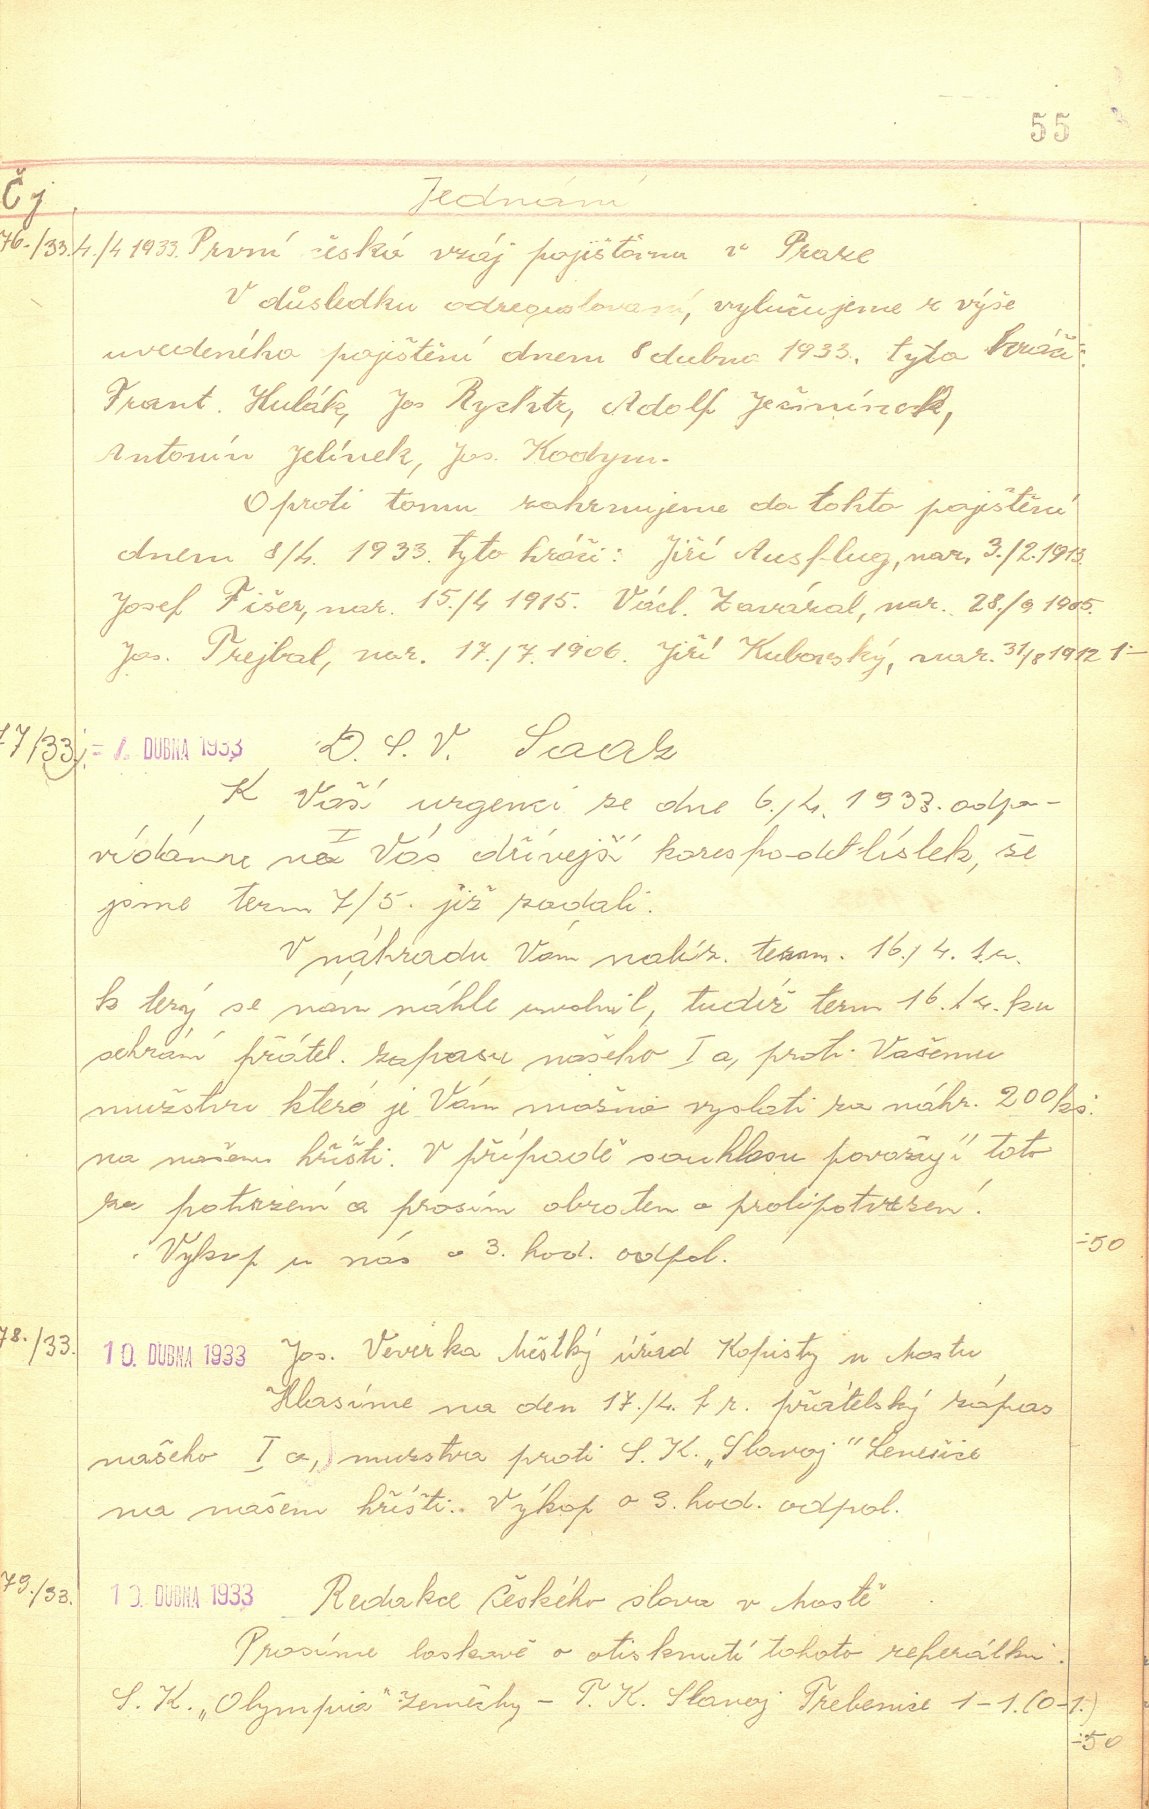 55
Čj. Jednání
76./33. 4./4 1933. První česká vzáj pojišťovna v Praze
V důsledku odregistrovaní, vylučujeme z výše
uvedeného pojištění dnem 8 dubna 1933. tyto hráči:
Frant. Hulák, Jos Rychtr, Adolf Ječmínek,
Antonín Jelínek, Jos. Kodym.
Oproti tomu zahrnujeme do tohto pojištění
dnem 8/4. 1933. tyto hráči: Jiří Ausflug, nar. 3./2.1913.
Josef Fišer, nar. 15./4 1915. Václ. Zavázal, nar. 28./9 1905.
Jos. Trejbal, nar. 17./7. 1906. Jiří Kubovský, nar. 31/8 1912 1-
77/33. DUBNA 1933 D. S. V. Saaz
K Vaší urgenci ze dne 6./4. 1933. odpo-
vídáme na I Vás dřívejší korespo-det-lístek, že
jsme term 7/5. již zadali.
V náhradu Vám nabíz. term. 16./4. t.r.
který se nám náhle uvolnil, tudíž term 16./4. ku
sehrání přátel. zapasu našeho I a, proti Vašemu
mužstvu které je Vám možno vyslati za náhr. 200 kč.
na našem hřišti. V případě souhlasu považují toto
za potvrzení a prosím obratem o protipotvrzení.
Výkop u nás o 3. hod. odpol. -50
78./33. 10. DUBNA 1933 Jos. Veverka Městký úřad Kopisty u Mostu
Hlasíme na den 17./4. t r. přátelský zápas
našeho I a, mužstva proti S. K. „Slavoj" Lenešice
na našem hřišti. Výkop o 3. hod. odpol.
79./33. 10. DUBNA 1933 Redakce Českého slova v Mostě
Prosíme laskavě o otisknutí tohoto referátku:
S. K. „Olympia" Zeměchy – T. K. Slavoj Třebenice 1-1. (0-1.)
-50